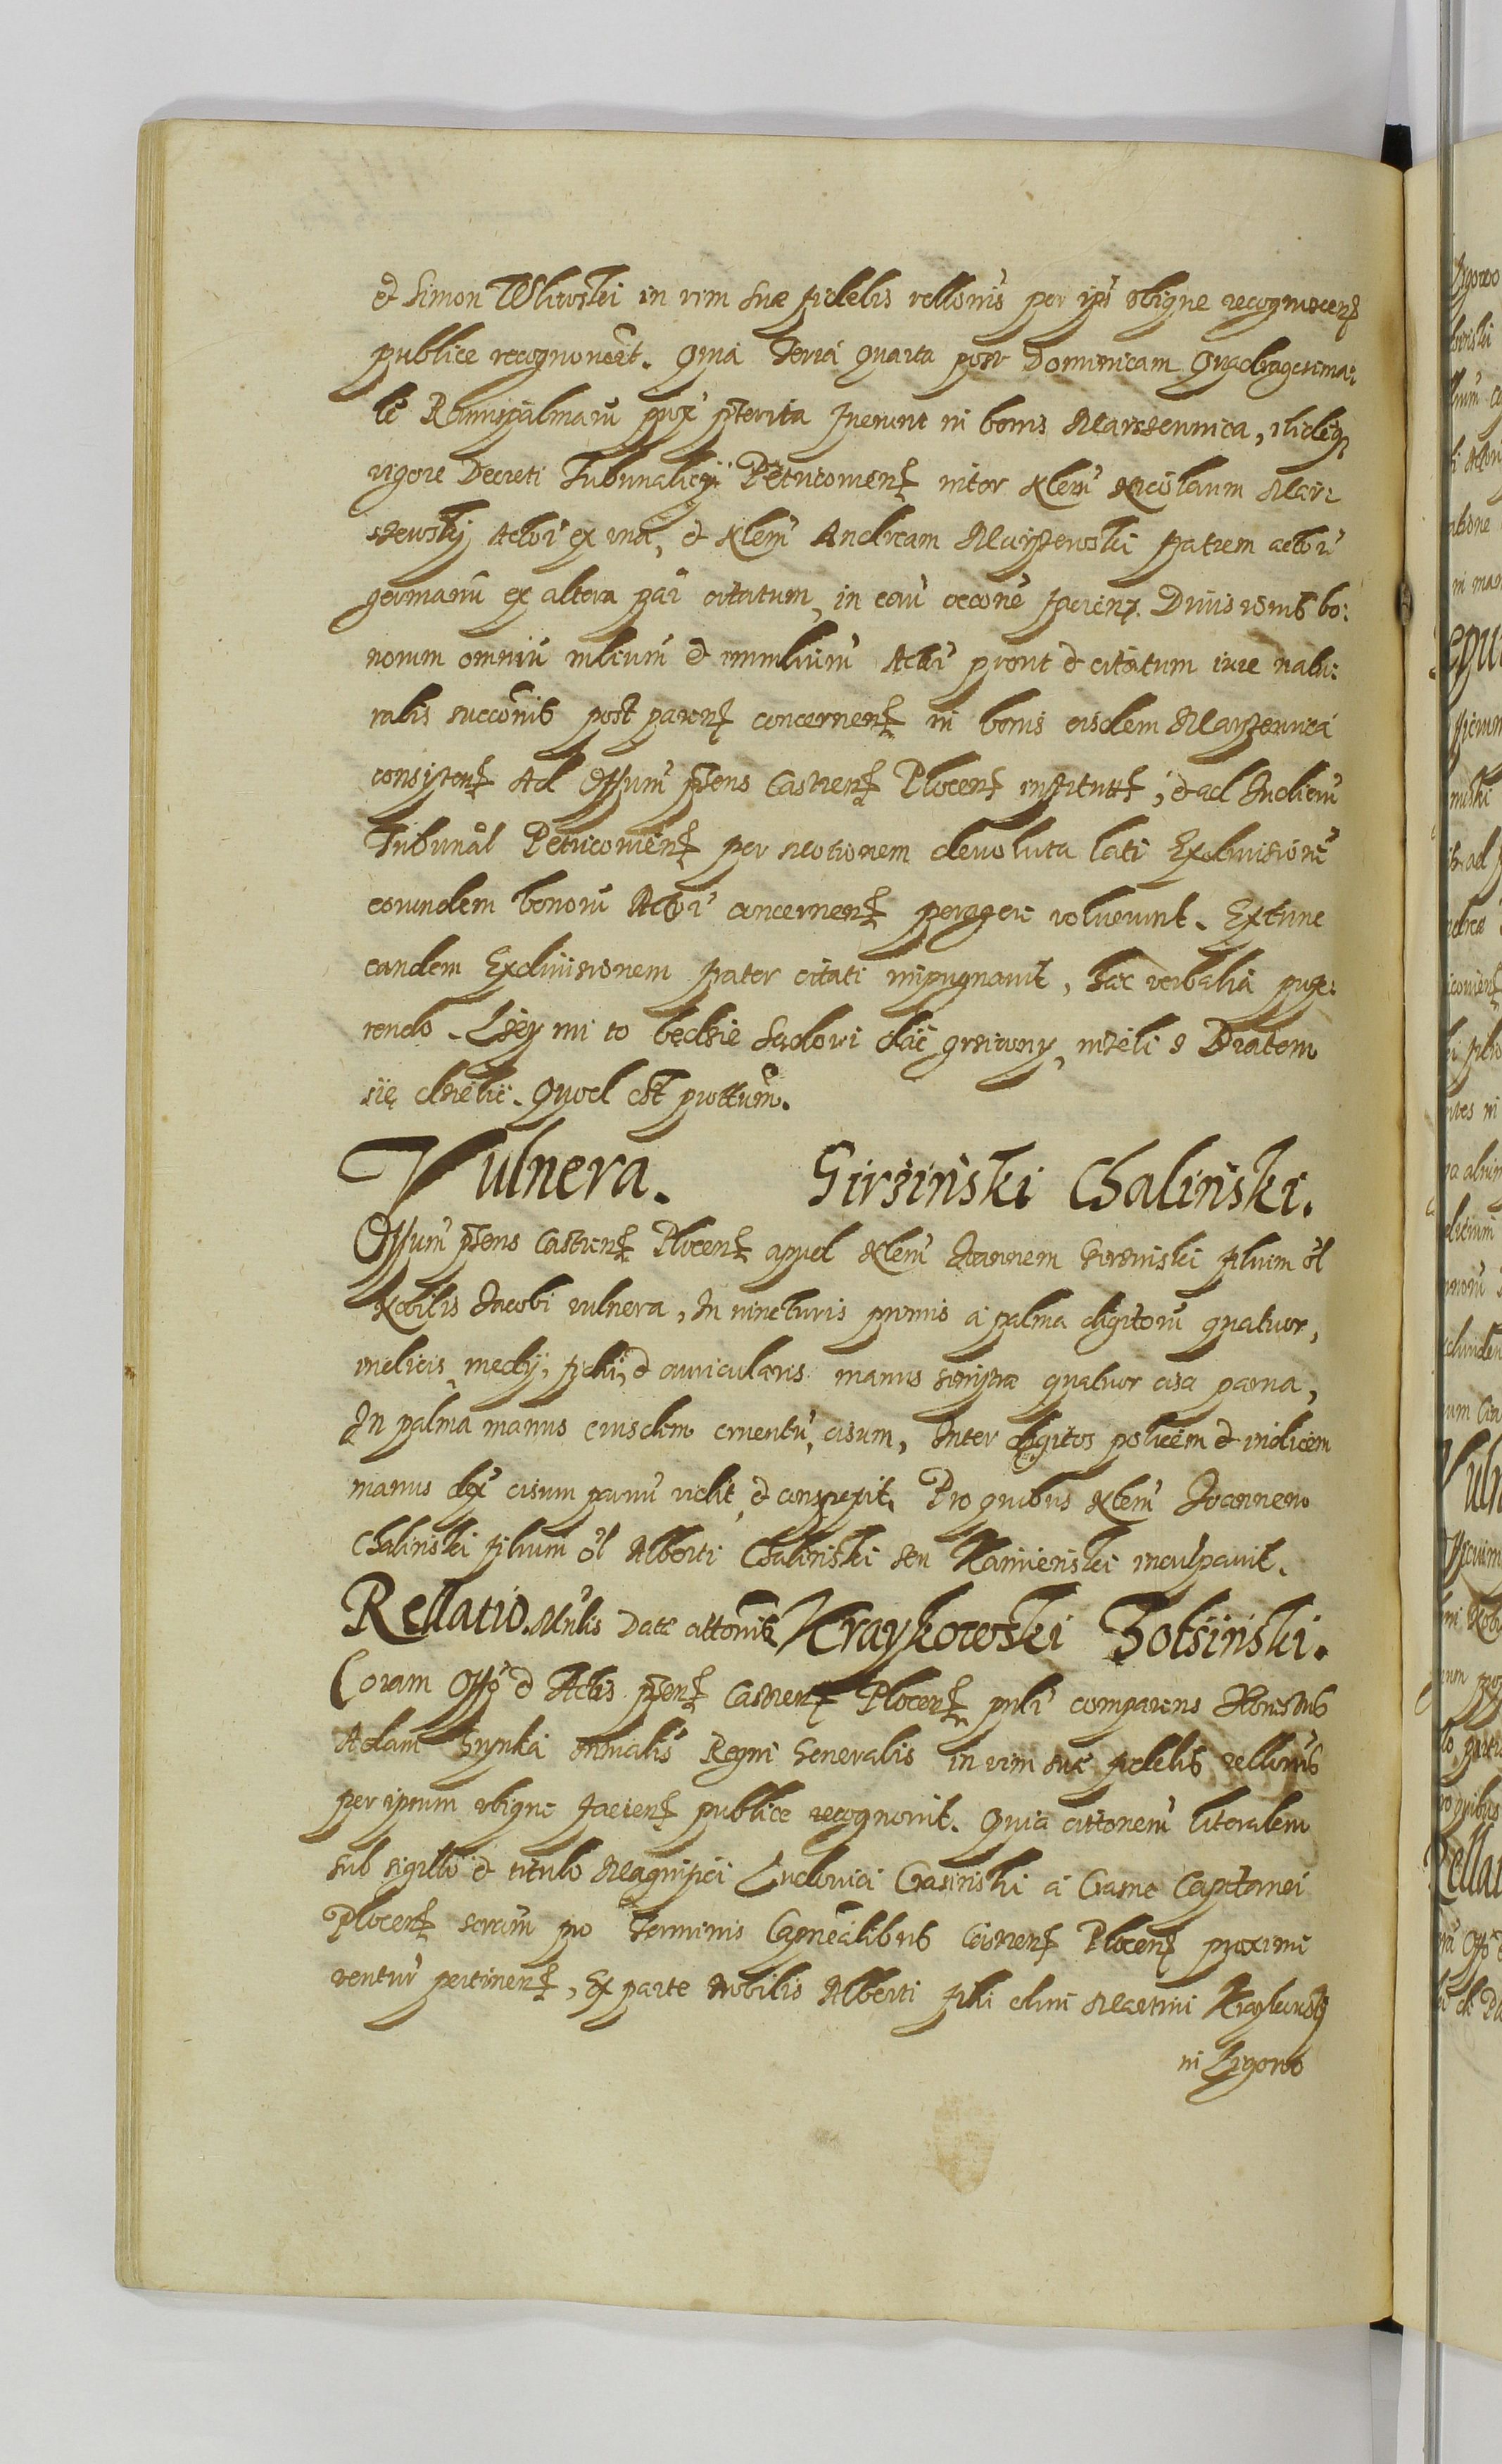 et Simon Wliwoski in vim suae fidelis rellonis per ipsi obigne recognoscen
publice recognoverut. Quia Feria Quarta post Dominicam Quadragesima:
le Ramispalmaru prox pterita fuerunt in bonis Marszewnica, ibideq
vigore Decreti Tribunalicy Petricovien inter Nlem Nicolaum Mar:
szewsky Actor ex una, et Nlem Andream Marszewski fratrem actoris
germanu ex altera par citatum, in eau occone facien. Divisionis bo:
norum omniu mlium et immlium Actori prout et citatum iure natu:
ralis succonis post paren concernen in bonis eisdem Marszewnica
consisten Ad Offum pns Castren Plocen institut, et ad Iudiciu
Tribunal Petricovien per motionem devoluta lati Exdivisione
eorundem bonoru Actori concernen peragere voluerunt. Extunc
eandem Exdivisionem frater citati impugnavit, haec verbalia profe:
rendo. Lzey mi to będzie Sądowi dać grziwny, niżeli s Bratem
się dzielić. Quod est prottum.
Vulnera. Girziński Chaliński.
Offum pns Castren Plocen apud Nlem Ioannem Girzinski filium ol
Nobilis Iacobi vulnera, In iuncturis primis a palma digitoru quatuor,
indicis, medij, fidi, et auricularis manus sinistrae quatuor cisa parva,
In palma manus eiusdem cruentu, cisum, Inter digitos policem et indicem
manus dex cisum parvu vidit, et conspexit. Pro quibus Nlem Ioannem
Chalinski filium ol Alberti Chalinski seu Kamienski inculpavit.
Rellatio Mnlis Datae cittonis Kraykowski Bolsiński.
Coram Offo et Actis pnten Castren Plocen pnli comparens Honestus
Adam Srynka mnialis Regni Generalis in vim suae fidelis rellonis
per ipsum obigne facien publice recognovit. Quia cittonem literalem
sub sigillo et titulo Magnifici Ludovici Crasinski a Crasne Capitanei
Plocen seriam pro Terminis Capnealibus Cistren Plocen proxime
ventur pertinen, Ex parte Nobilis Alberti fili olim Martini Kraykowsky
in Ligowo